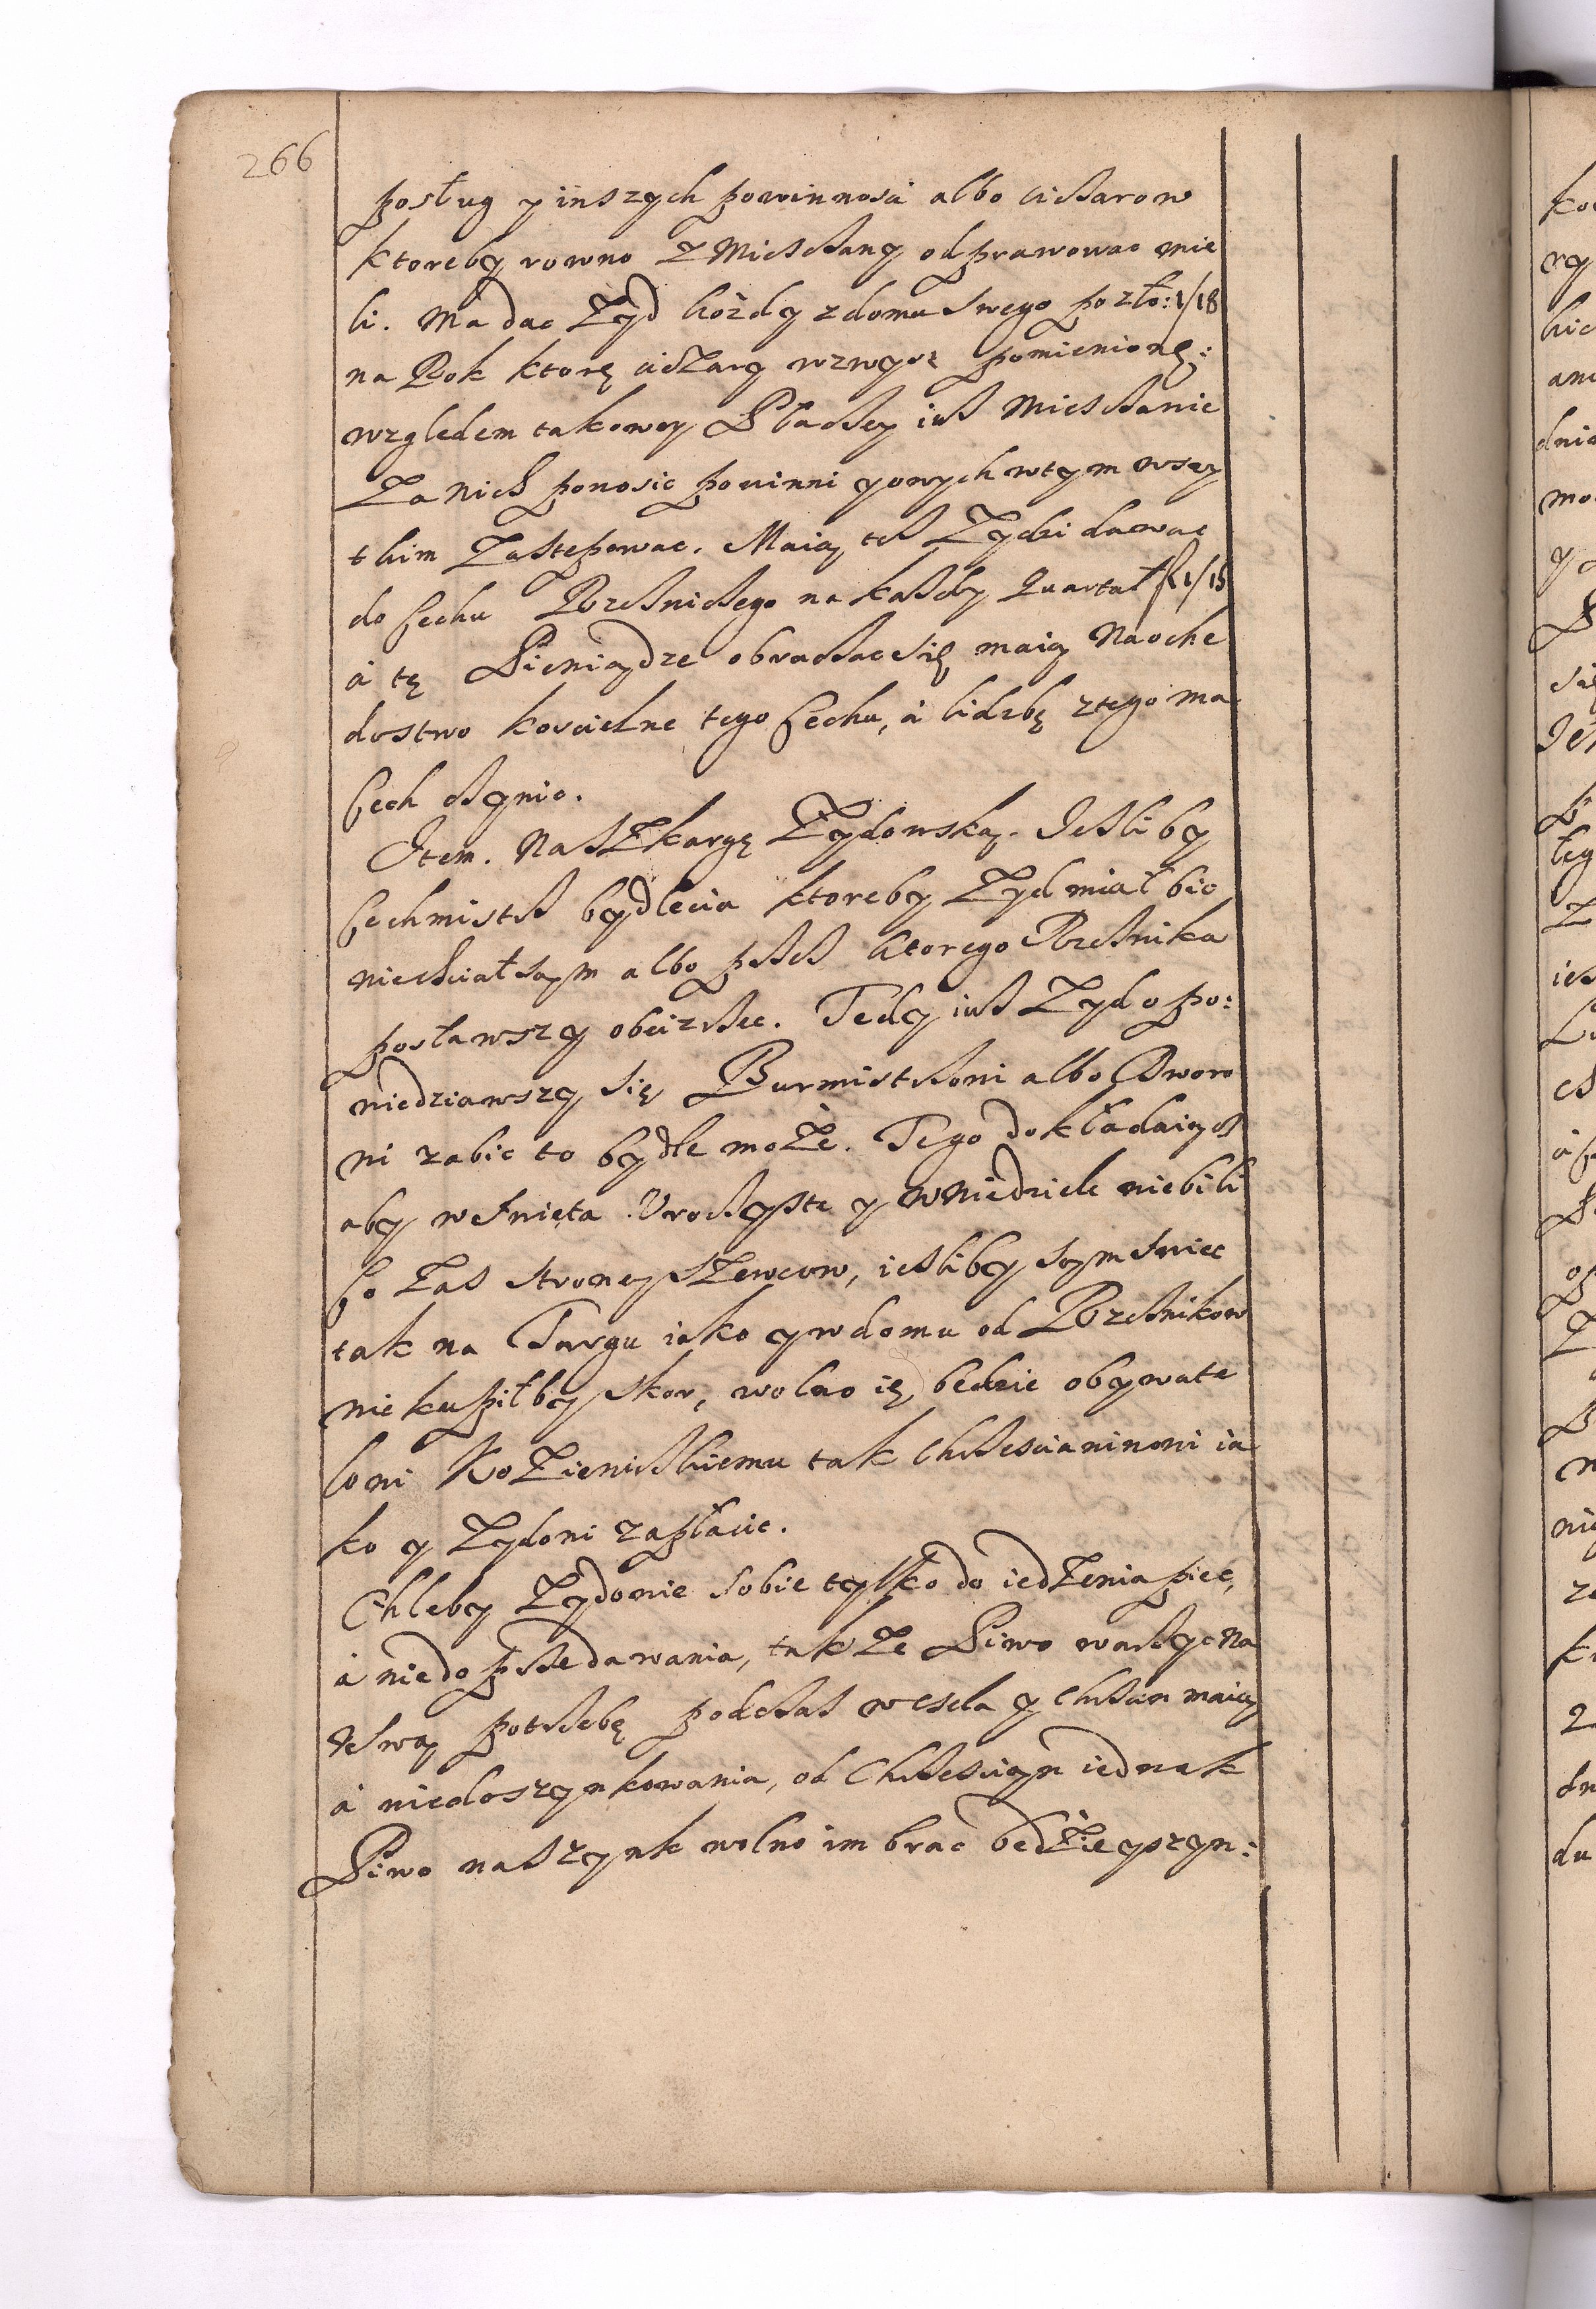 266
posług y inszych powinnosci albo ciszarow
ktoreby rowno z Miesczany odprawowac mie
li. Ma dac Zyd kożdy z domu swego po zło: 1/18
na Rok ktorę ciężary wzwysz pomienionę:
względem takowey Płaczey iusz Miesczanie
Za nich ponosic powinni y owych wtym wszy
tkim Zastępowac. Maią tesz Zydzi dawac
do Cechu Rzeznickego na kaszdy Quartał fl 1/15
á tę Pieniądze obraczac się maią Na oche
dostwo koscielne tego Cechu, á liczbę z tego ma
Cech czynic.
Item. Na Szkargę Zydowską. Jeszliby
Cechmistrz bydlecia ktoreby Zyd miał bic
niechciał sąm albo przez ktorego Rzeznika
posławszy obeizrzec. Tedy iusz Zyd opo:
niedziawszy się Burmistrzoni albo Dworo
ni zabic to bydle może. Tego dokładaiącz
aby w Swięta Uroczyste y w Niedziele nie bili
Co zas strony Szewcow, iesliby sąm Swiec
tak na Targu iako y w domu od Rzeznikow
nie kupił by skor, wolno ię będzie obywate
loni Kozieniczkiemu tak Chrzescianinoni ia
ko y Zydoni zapłacic.
Chleby Zydonie sobie tylko do iedzenia piec,
á nie do przedawania, takze Piwo warzyc Na
Swą potrzebę podczas wesela y Chrzcin maią
á nie do szynkowania, od Chrzesciąn iednak
Piwo na szynk wolno im brac będzie y szyn: